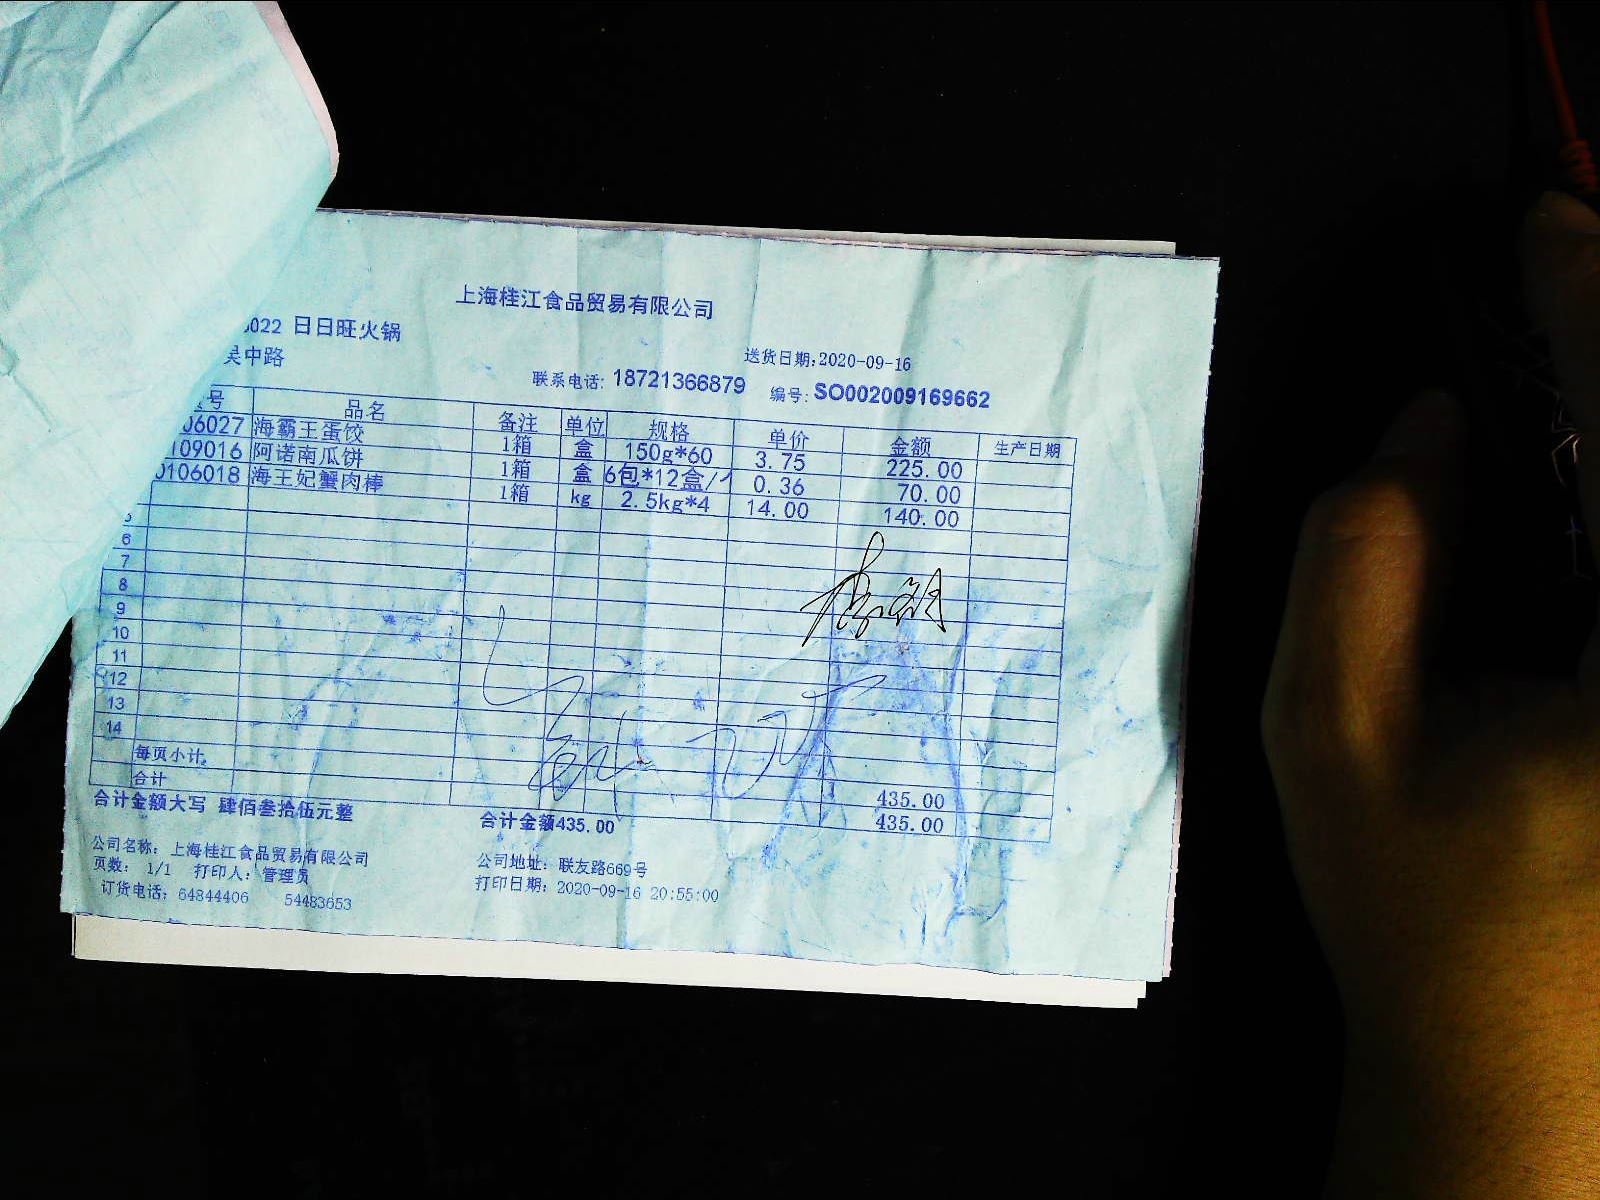 上海桂江食品贸易有限公司
6022 日日旺火锅
吴中路
送货日期:2020-09-16
联系电话: 18721366879 编号: SO002009169662
号 品名 备注 单位 规格 单价 金额 生产日期
06027 海霸王蛋饺 1箱 盒 150g*60 3.75 225.00
109016 阿诺南瓜饼 1箱 盒 6包*12盒/ 0.36 70.00
0106018 海王妃蟹肉棒 1箱 kg 2.5kg*4 14.00 140.00
5
6
7
8
9
10
11
12
13
14
每页小计 435.00
合计 435.00
合计金额大写 肆佰叁拾伍元整 合计金额435.00
公司名称: 上海桂江食品贸易有限公司 公司地址: 联友路669号
页数: 1/1 打印人: 管理员 打印日期: 2020-09-16 20:55:00
订货电话: 64844406 54483653